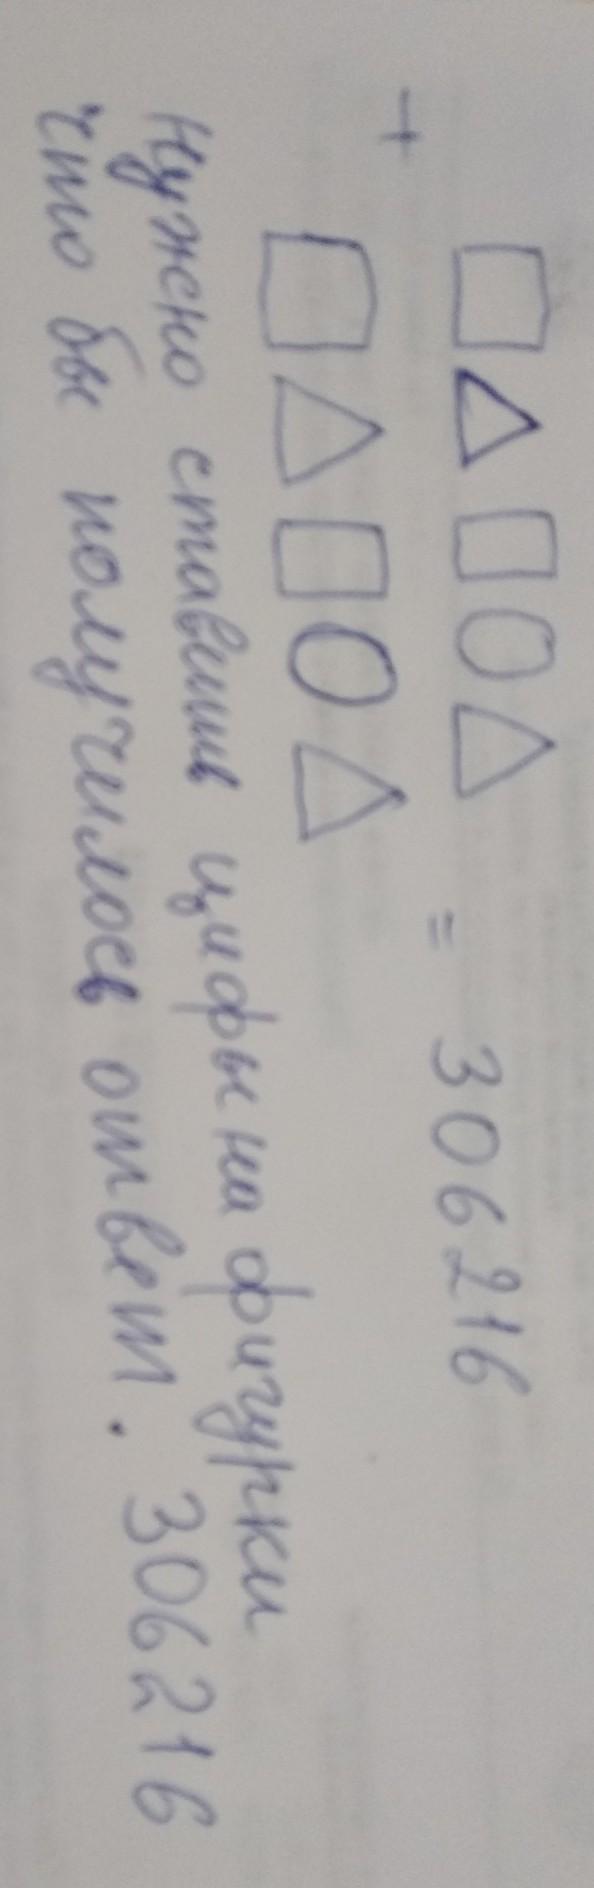 + □△□○△ = 306216
□△□○△
Нужно ставить цифры на фигурки
что бы получилось ответ. 306216